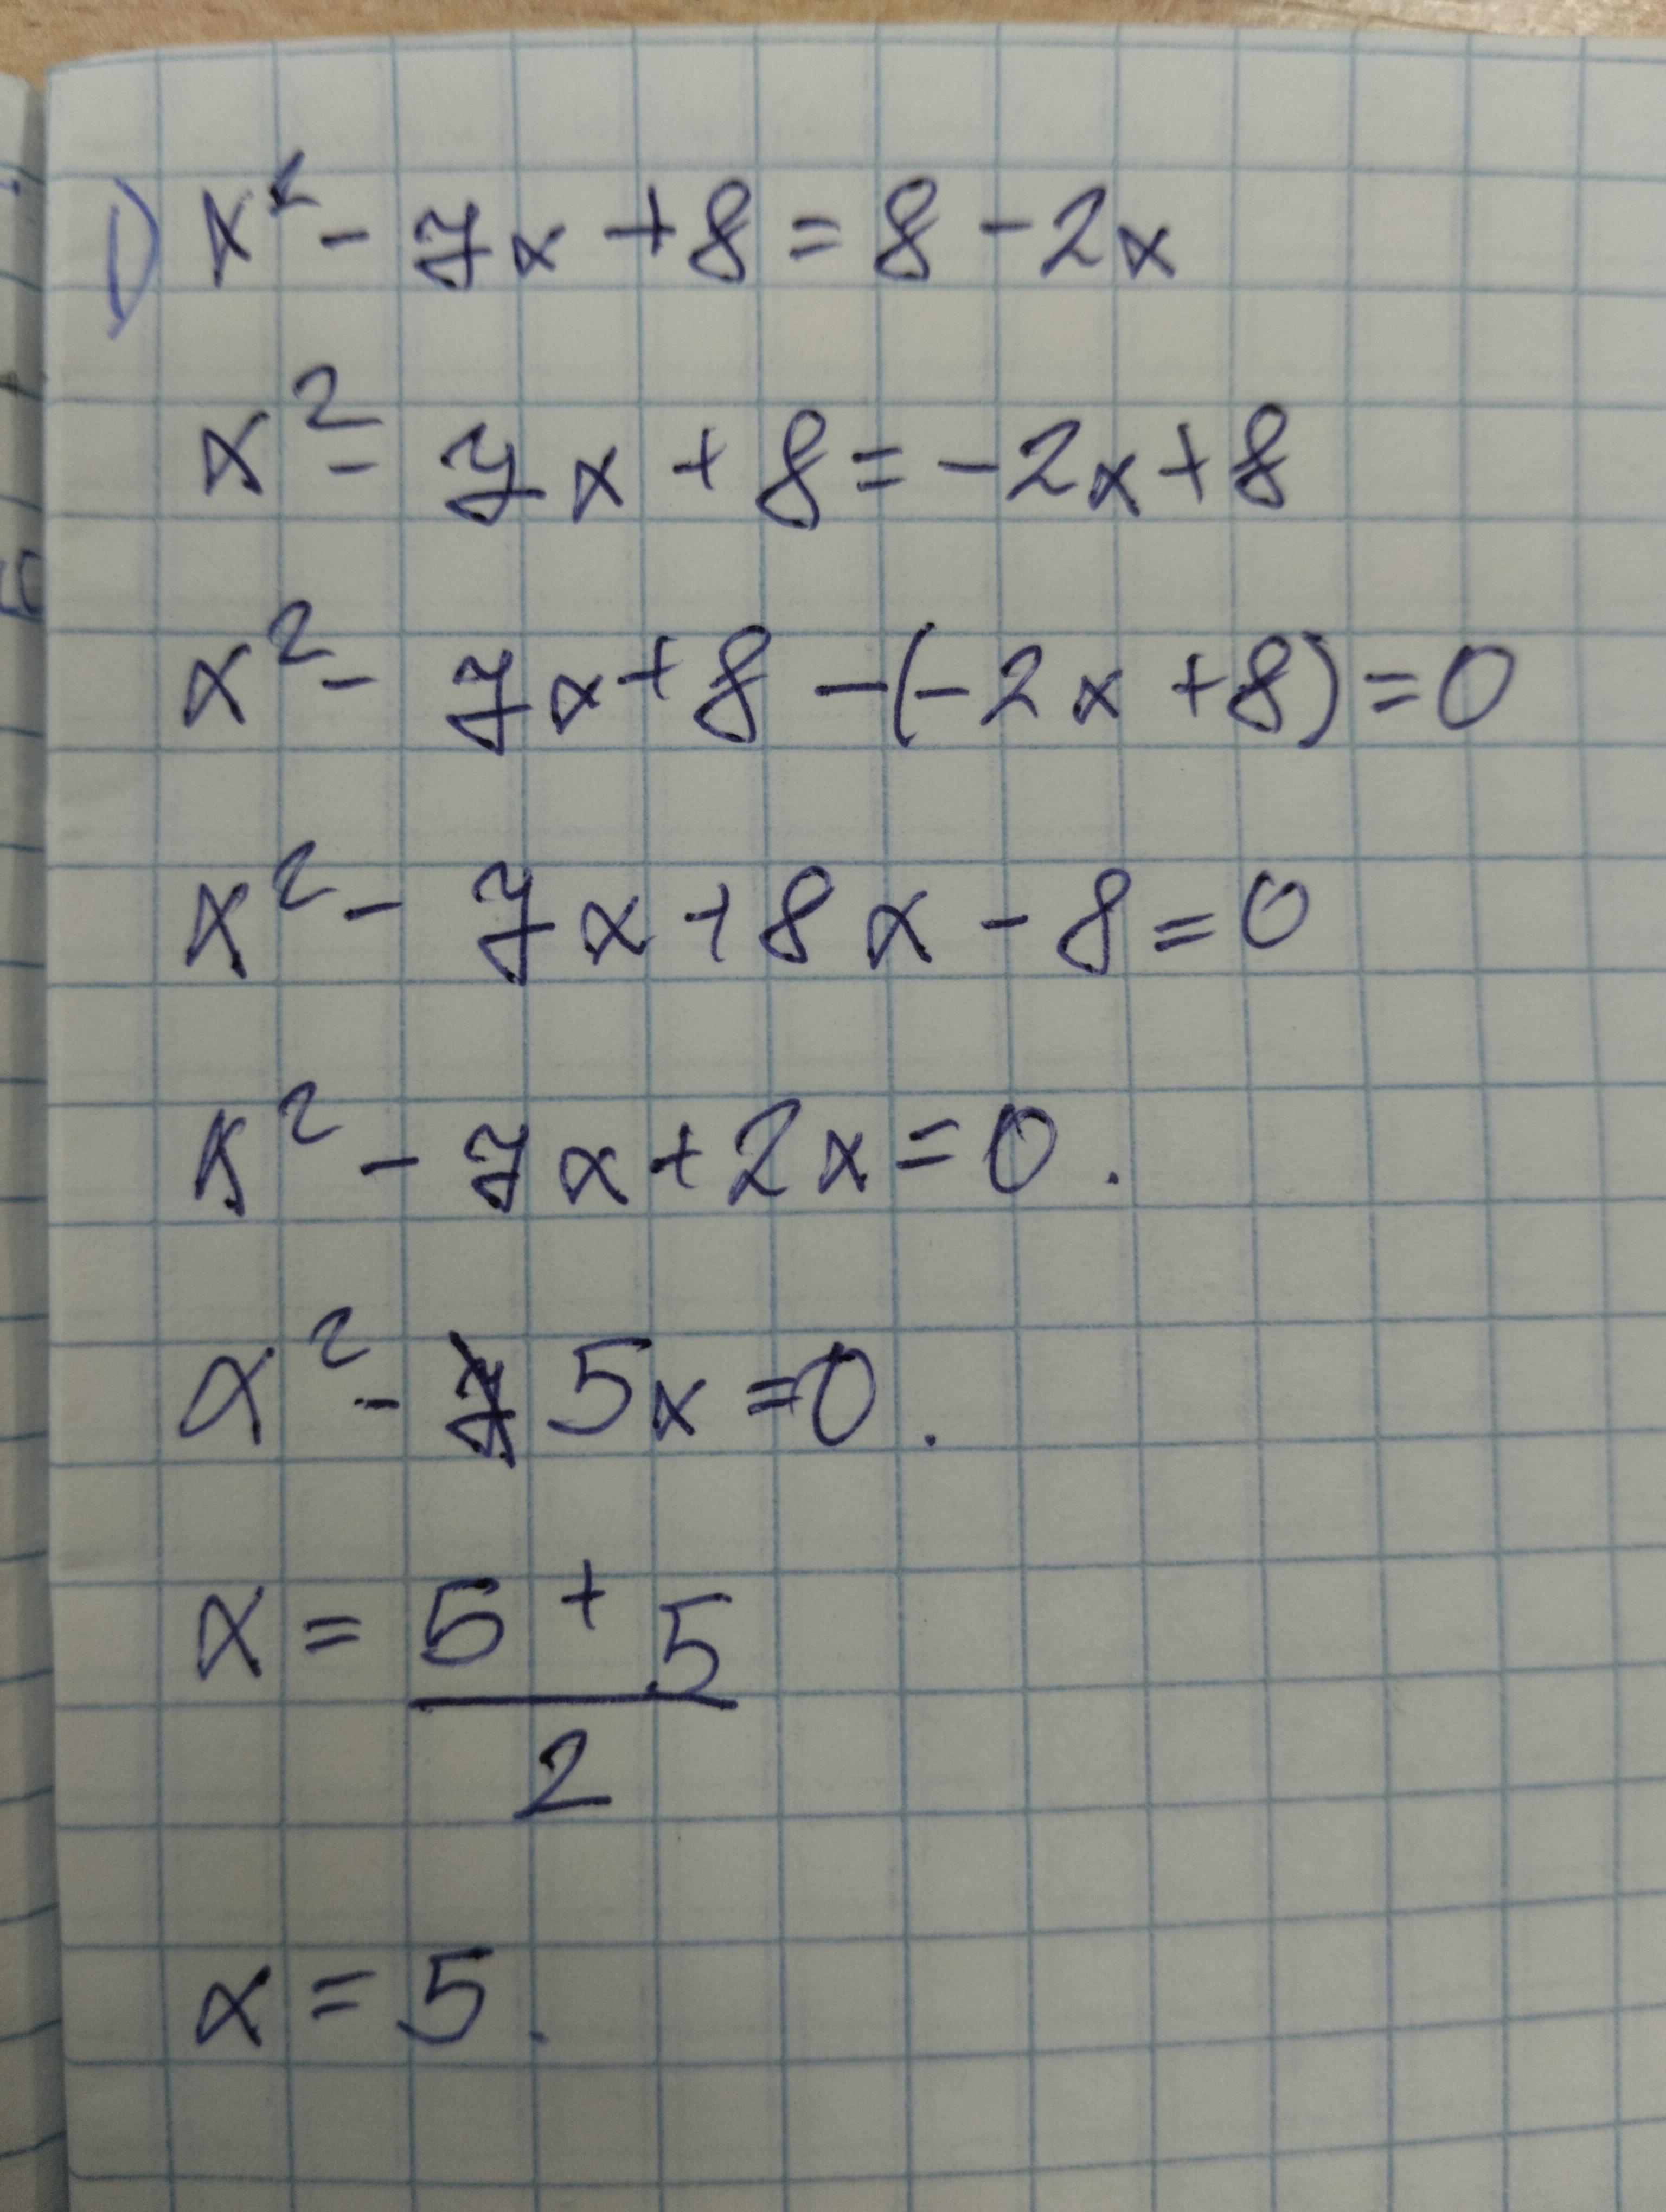 1) x² - 7x + 8 = 8 - 2x
x² - 7x + 8 = -2x + 8
x² - 7x + 8 - (-2x + 8) = 0
x² - 7x + 8x - 8 = 0
x² - 7x + 2x = 0.
x² - 5x = 0.
x = 5 + 5
2
x = 5.